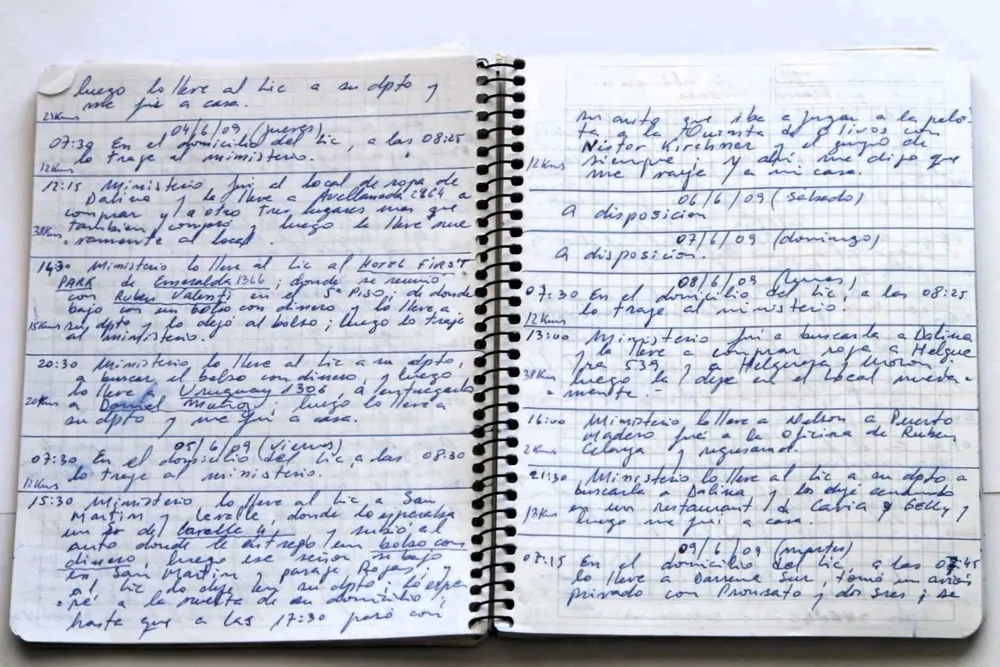 luego lo lleve al Lic a su dpto y
me fui a casa.
21Kms
04/6/09 (jueves)
07:30 En el domicilio del Lic, a las 08:25
lo traje al ministerio.
12Kms
12:15 Ministerio fui al local de ropa de
Dalina y la lleve a Avellaneda 2964 a
comprar y a otro tres lugares mas que
tambien compró y luego la lleve nue
38Kms = vamente al local.
14:30 Ministerio lo lleve al Lic al HOTEL FIRST
PARK de Esmeralda 1366, donde se reunió
con Ruben Valenti en el 5º Piso; de donde
bajo con un bolso con dinero y lo lleve a
15Kms su dpto y lo dejó al bolso; luego lo traje
al ministerio.
20:30 Ministerio lo lleve al Lic a su dpto,
a buscar el bolso con dinero y luego
lo lleve a Uruguay 1306 a entregarlo
20Kms a Daniel Muñoz, luego lo lleve a
su dpto y me fui a casa.
05/6/09 (viernes)
07:30 En el domicilio del Lic, a las 08:30
lo traje al ministerio.
12Kms
15:30 Ministerio lo lleve al Lic a San
Martin y Levalle, donde lo esperaba
un Sr de y subió al
auto donde le entregó un bolso con
dinero, luego ese señor se bajo
en San Martin y
al Lic lo deje en su dpto, lo espe
=ré a la vuelta de su domicilio,
hasta que a las 17:30 pasó con
su auto que iba a jugar a la pelo=
ta a la Quinta de Olivos con
Néstor Kirchner y el grupo de
siempre; y ahi me dijo que
12Kms me vaya y a mi casa.
06/6/09 (sabado)
a disposicion
07/6/09 (domingo)
a disposicion.
08/6/09 (lunes)
07:30 En el domicilio del Lic, a las 08:25
lo traje al ministerio.
12Kms
13:00 Ministerio fui a buscarla a Dalina
y la lleve a comprar ropa a Helgue
ra 539 y a Helguera y Moron,
38Kms luego la deje en el local nueva=
=mente.
16:00 Ministerio lo lleve a Nelson a Puerto
Madero fué a la oficina de Ruben
2Kms y regresamos.
21:30 Ministerio lo lleve al Lic a su dpto a
buscarla a Dalina y los deje cenando
13Kms en un restaurant de Cavia y Gelly y
luego me fui a casa.
09/6/09 (martes)
07:15 En el domicilio del Lic, a las 07:45
lo lleve a Darsena Sur, tomó un avión
privado con y dos sres; se